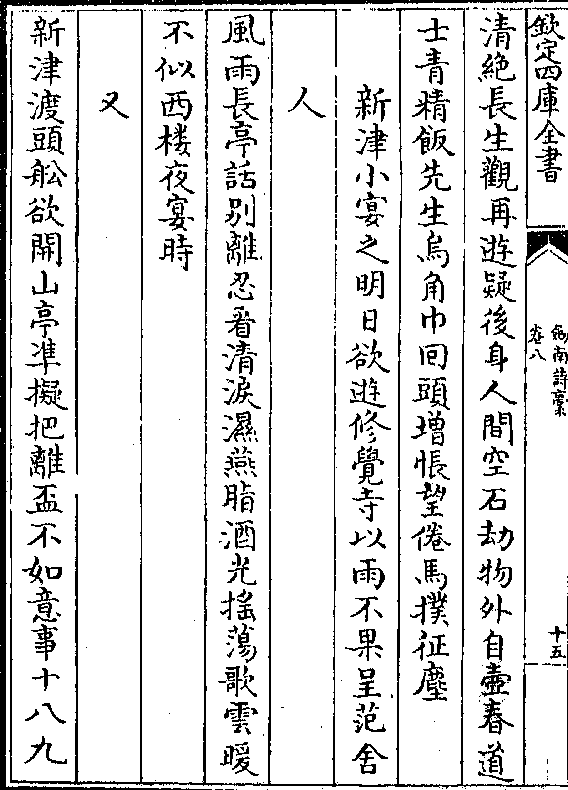 欽定四庫全書
劔南詩稾
卷八
十五
清絶長生觀再遊疑後身人間空石劫物外自壺春道
士青精飯先生烏角巾回頭增悵望倦馬撲征塵
新津小宴之明日欲遊修覺寺以雨不果呈范舍
人
風雨長亭話别離忍看清淚濕燕脂酒光揺蕩歌雲暖
不似西楼夜宴時
又
新津渡頭舩欲開山亭凖擬把離盃不如意事十八九